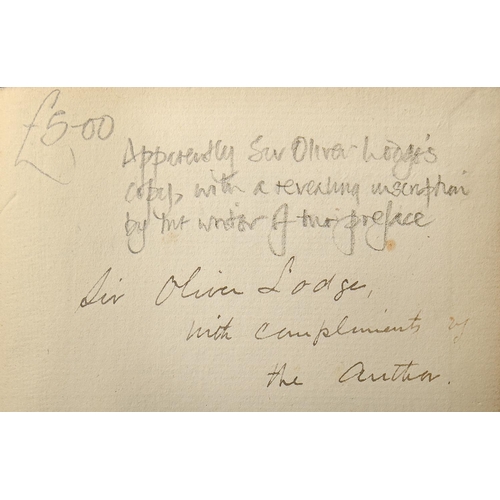 £5-00
Apparently Sir Oliver Lodge's
copy, with a revealing inscription
by the writer of the preface
Sir Oliver Lodge,
with compliments of
the author.